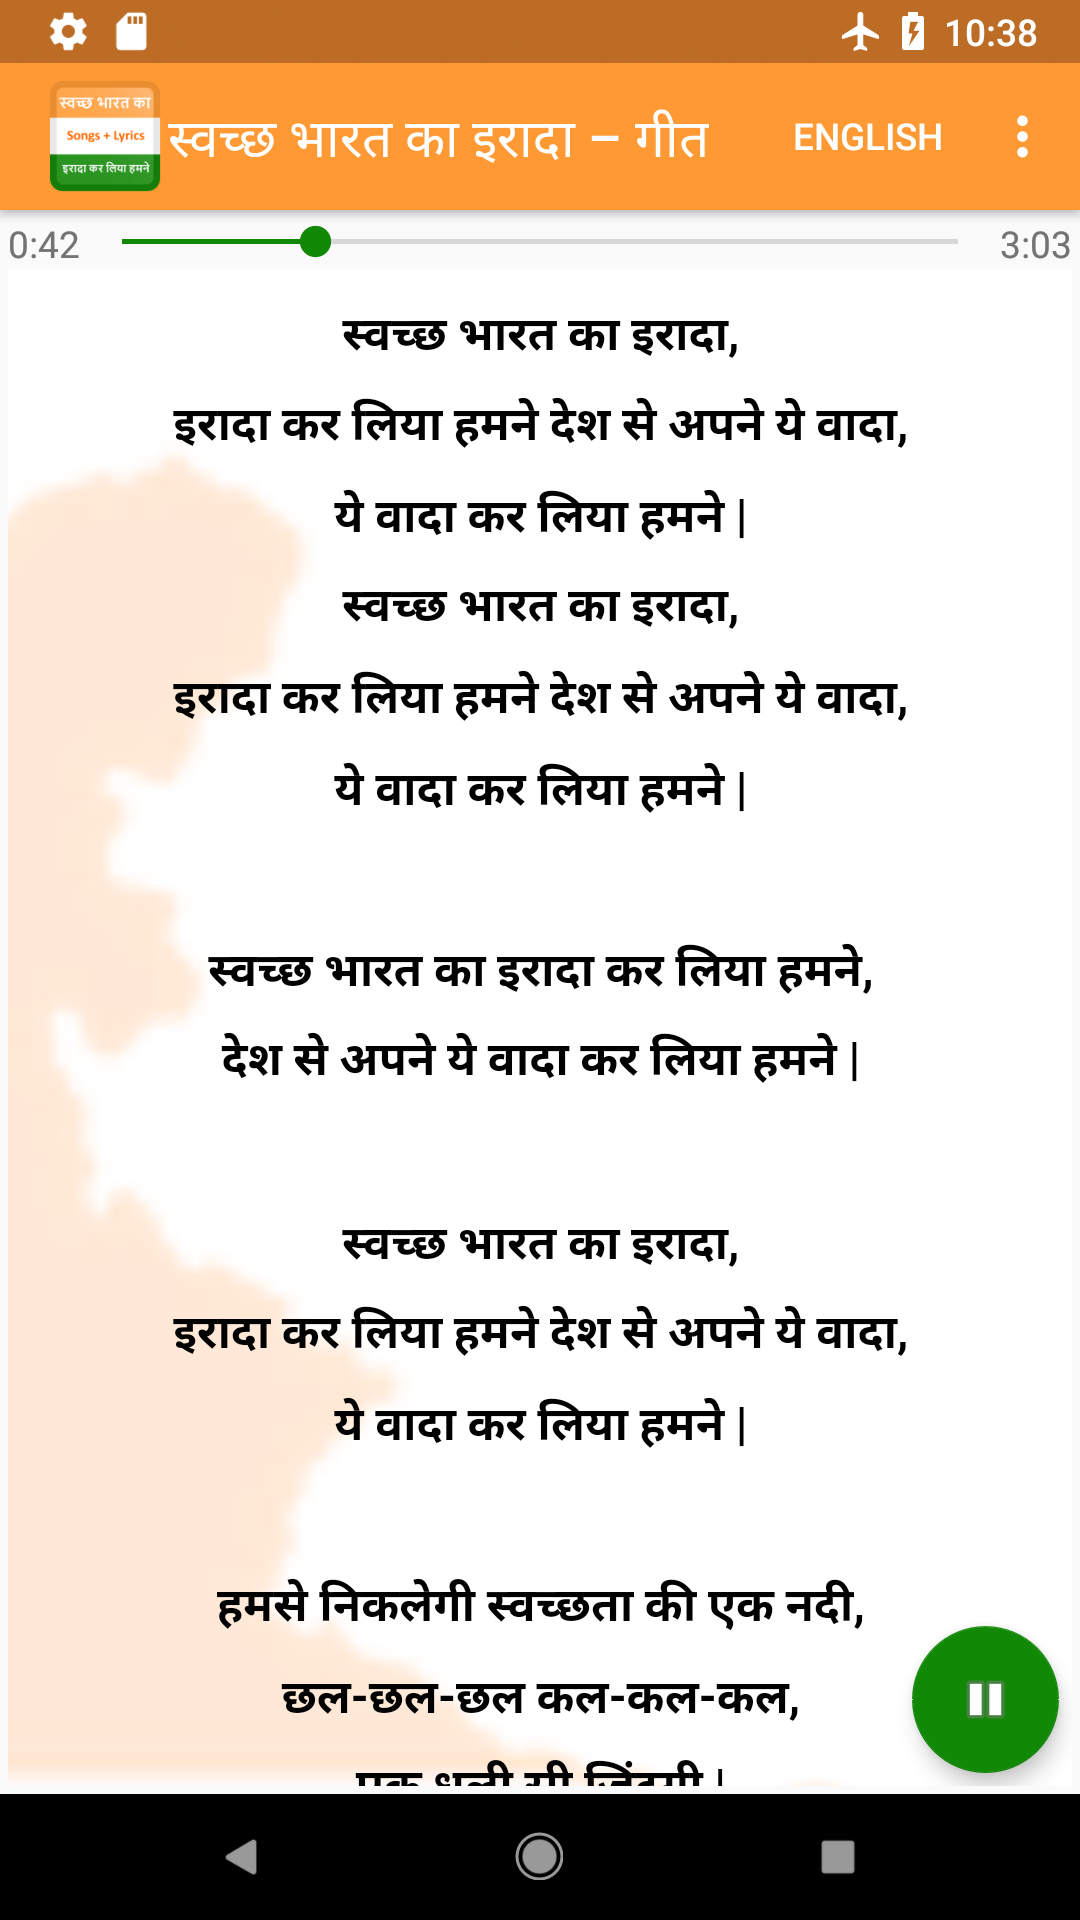 10:38
स्वच्छ भारत का
Songs + Lyrics
इरादा कर लिया हमने
स्वच्छ भारत का इरादा – गीत
ENGLISH
0:42
3:03
स्वच्छ भारत का इरादा,
इरादा कर लिया हमने देश से अपने ये वादा,
ये वादा कर लिया हमने |
स्वच्छ भारत का इरादा,
इरादा कर लिया हमने देश से अपने ये वादा,
ये वादा कर लिया हमने |
स्वच्छ भारत का इरादा कर लिया हमने,
देश से अपने ये वादा कर लिया हमने |
स्वच्छ भारत का इरादा,
इरादा कर लिया हमने देश से अपने ये वादा,
ये वादा कर लिया हमने |
हमसे निकलेगी स्वच्छता की एक नदी,
छल-छल-छल कल-कल-कल,